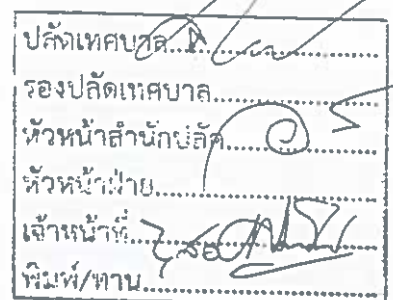 ปลัดเทศบาล
รองปลัดเทศบาล
หัวหน้าสำนักปลัด
หัวหน้าฝ่าย
เจ้าหน้าที่
พิมพ์/ทาน